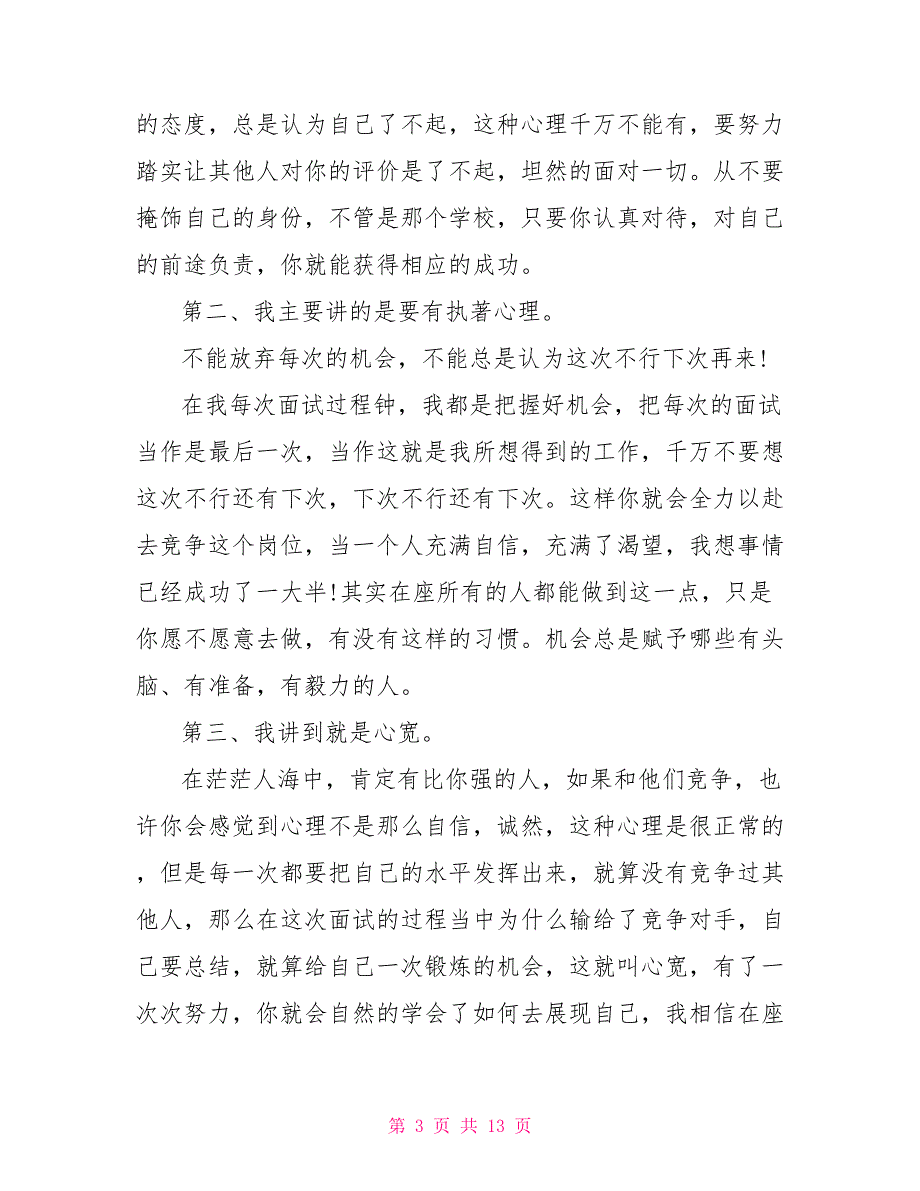 的态度，总是认为自己了不起，这种心理千万不能有，要努力
踏实让其他人对你的评价是了不起，坦然的面对一切。从不要
掩饰自己的身份，不管是那个学校，只要你认真对待，对自己
的前途负责，你就能获得相应的成功。
第二、我主要讲的是要有执著心理。
不能放弃每次的机会，不能总是认为这次不行下次再来!
在我每次面试过程钟，我都是把握好机会，把每次的面试
当作是最后一次，当作这就是我所想得到的工作，千万不要想
这次不行还有下次，下次不行还有下次。这样你就会全力以赴
去竞争这个岗位，当一个人充满自信，充满了渴望，我想事情
已经成功了一大半!其实在座所有的人都能做到这一点，只是
你愿不愿意去做，有没有这样的习惯。机会总是赋予哪些有头
脑、有准备，有毅力的人。
第三、我讲到就是心宽。
在茫茫人海中，肯定有比你强的人，如果和他们竞争，也
许你会感觉到心理不是那么自信，诚然，这种心理是很正常的
，但是每一次都要把自己的水平发挥出来，就算没有竞争过其
他人，那么在这次面试的过程当中为什么输给了竞争对手，自
己要总结，就算给自己一次锻炼的机会，这就叫心宽，有了一
次次努力，你就会自然的学会了如何去展现自己，我相信在座
第 3 页 共 13 页